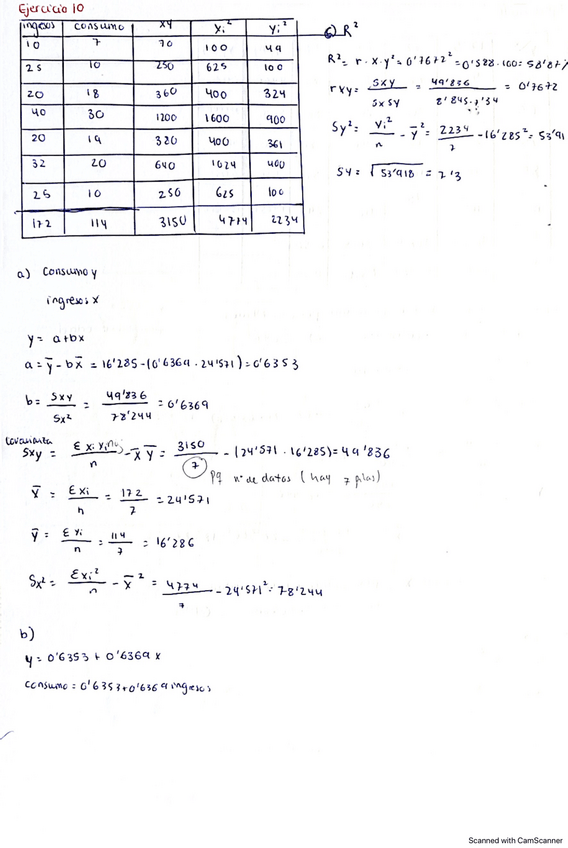 Ejercicio 10
ingesos consumo xy xi² yi²
10 7 70 100 49
25 10 250 625 100
20 18 360 400 324
40 30 1200 1600 900
20 19 320 400 361
32 20 640 1024 400
25 10 250 625 100
172 114 3150 4774 2234
c) R²
R² = r·x·y² = 0'7672² = 0'588·100 = 58'87%
rxy = Sxy / Sx Sy = 49'836 / 8'845·7'34 = 0'7672
Sy² = yi² / n - y̅² = 2234 / 7 - 16'285² = 53'91
Sy = √53'918 = 7'3
a) Consumo y
ingresos x
y = a+bx
a = y̅ - b x̅ = 16'285 - (0'6369 · 24'571) = 0'6353
b = Sxy / Sx² = 49'836 / 78'244 = 0'6369
Covarianza
Sxy = Σ xi yi ni / n - x̅ y̅ = 3150 / 7 - (24'571 · 16'285) = 49'836
pq nº de datos (hay 7 filas)
x̅ = Σxi / n = 172 / 7 = 24'571
y̅ = Σ yi / n = 114 / 7 = 16'286
Sx² = Σxi² / n - x̅² = 4774 / 7 - 24'571² = 78'244
b)
y = 0'6353 + 0'6369 x
consumo = 0'6353 + 0'6369 ingresos
Scanned with CamScanner